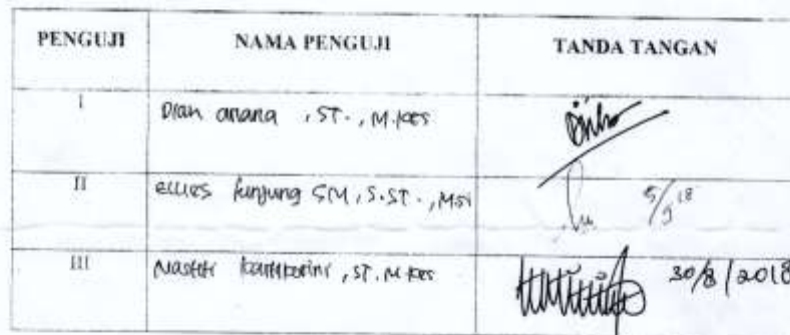 PENGUJI NAMA PENGUJI TANDA TANGAN
I Dian anana , ST. , M.kes
II ellies tunjung SM, S.ST. , M.si 5/9 18
III Nastiti kartikorini , ST. M.kes 30/8/2018